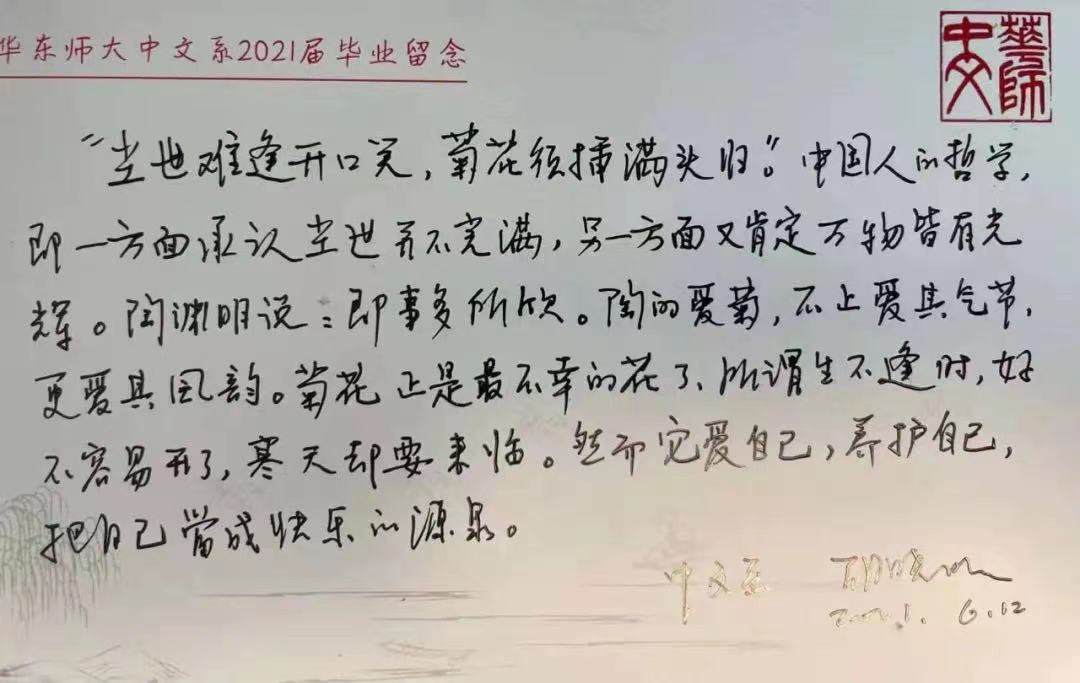 华东师大中文系2021届毕业留念
華師
中文
“尘世难逢开口笑，菊花须插满头归。”中国人的哲学，
即一方面承认尘世并不完满，另一方面又肯定万物皆有光
辉。陶渊明说：即事多所欣。陶的爱菊，不止爱其气节，
更爱其风韵。菊花正是最不幸的花了、所谓生不逢时，好
不容易开了，寒天却要来临。然而它爱自己，养护自己，
把自己當成快乐的源泉。
中文系 胡晓明
2021.6.12